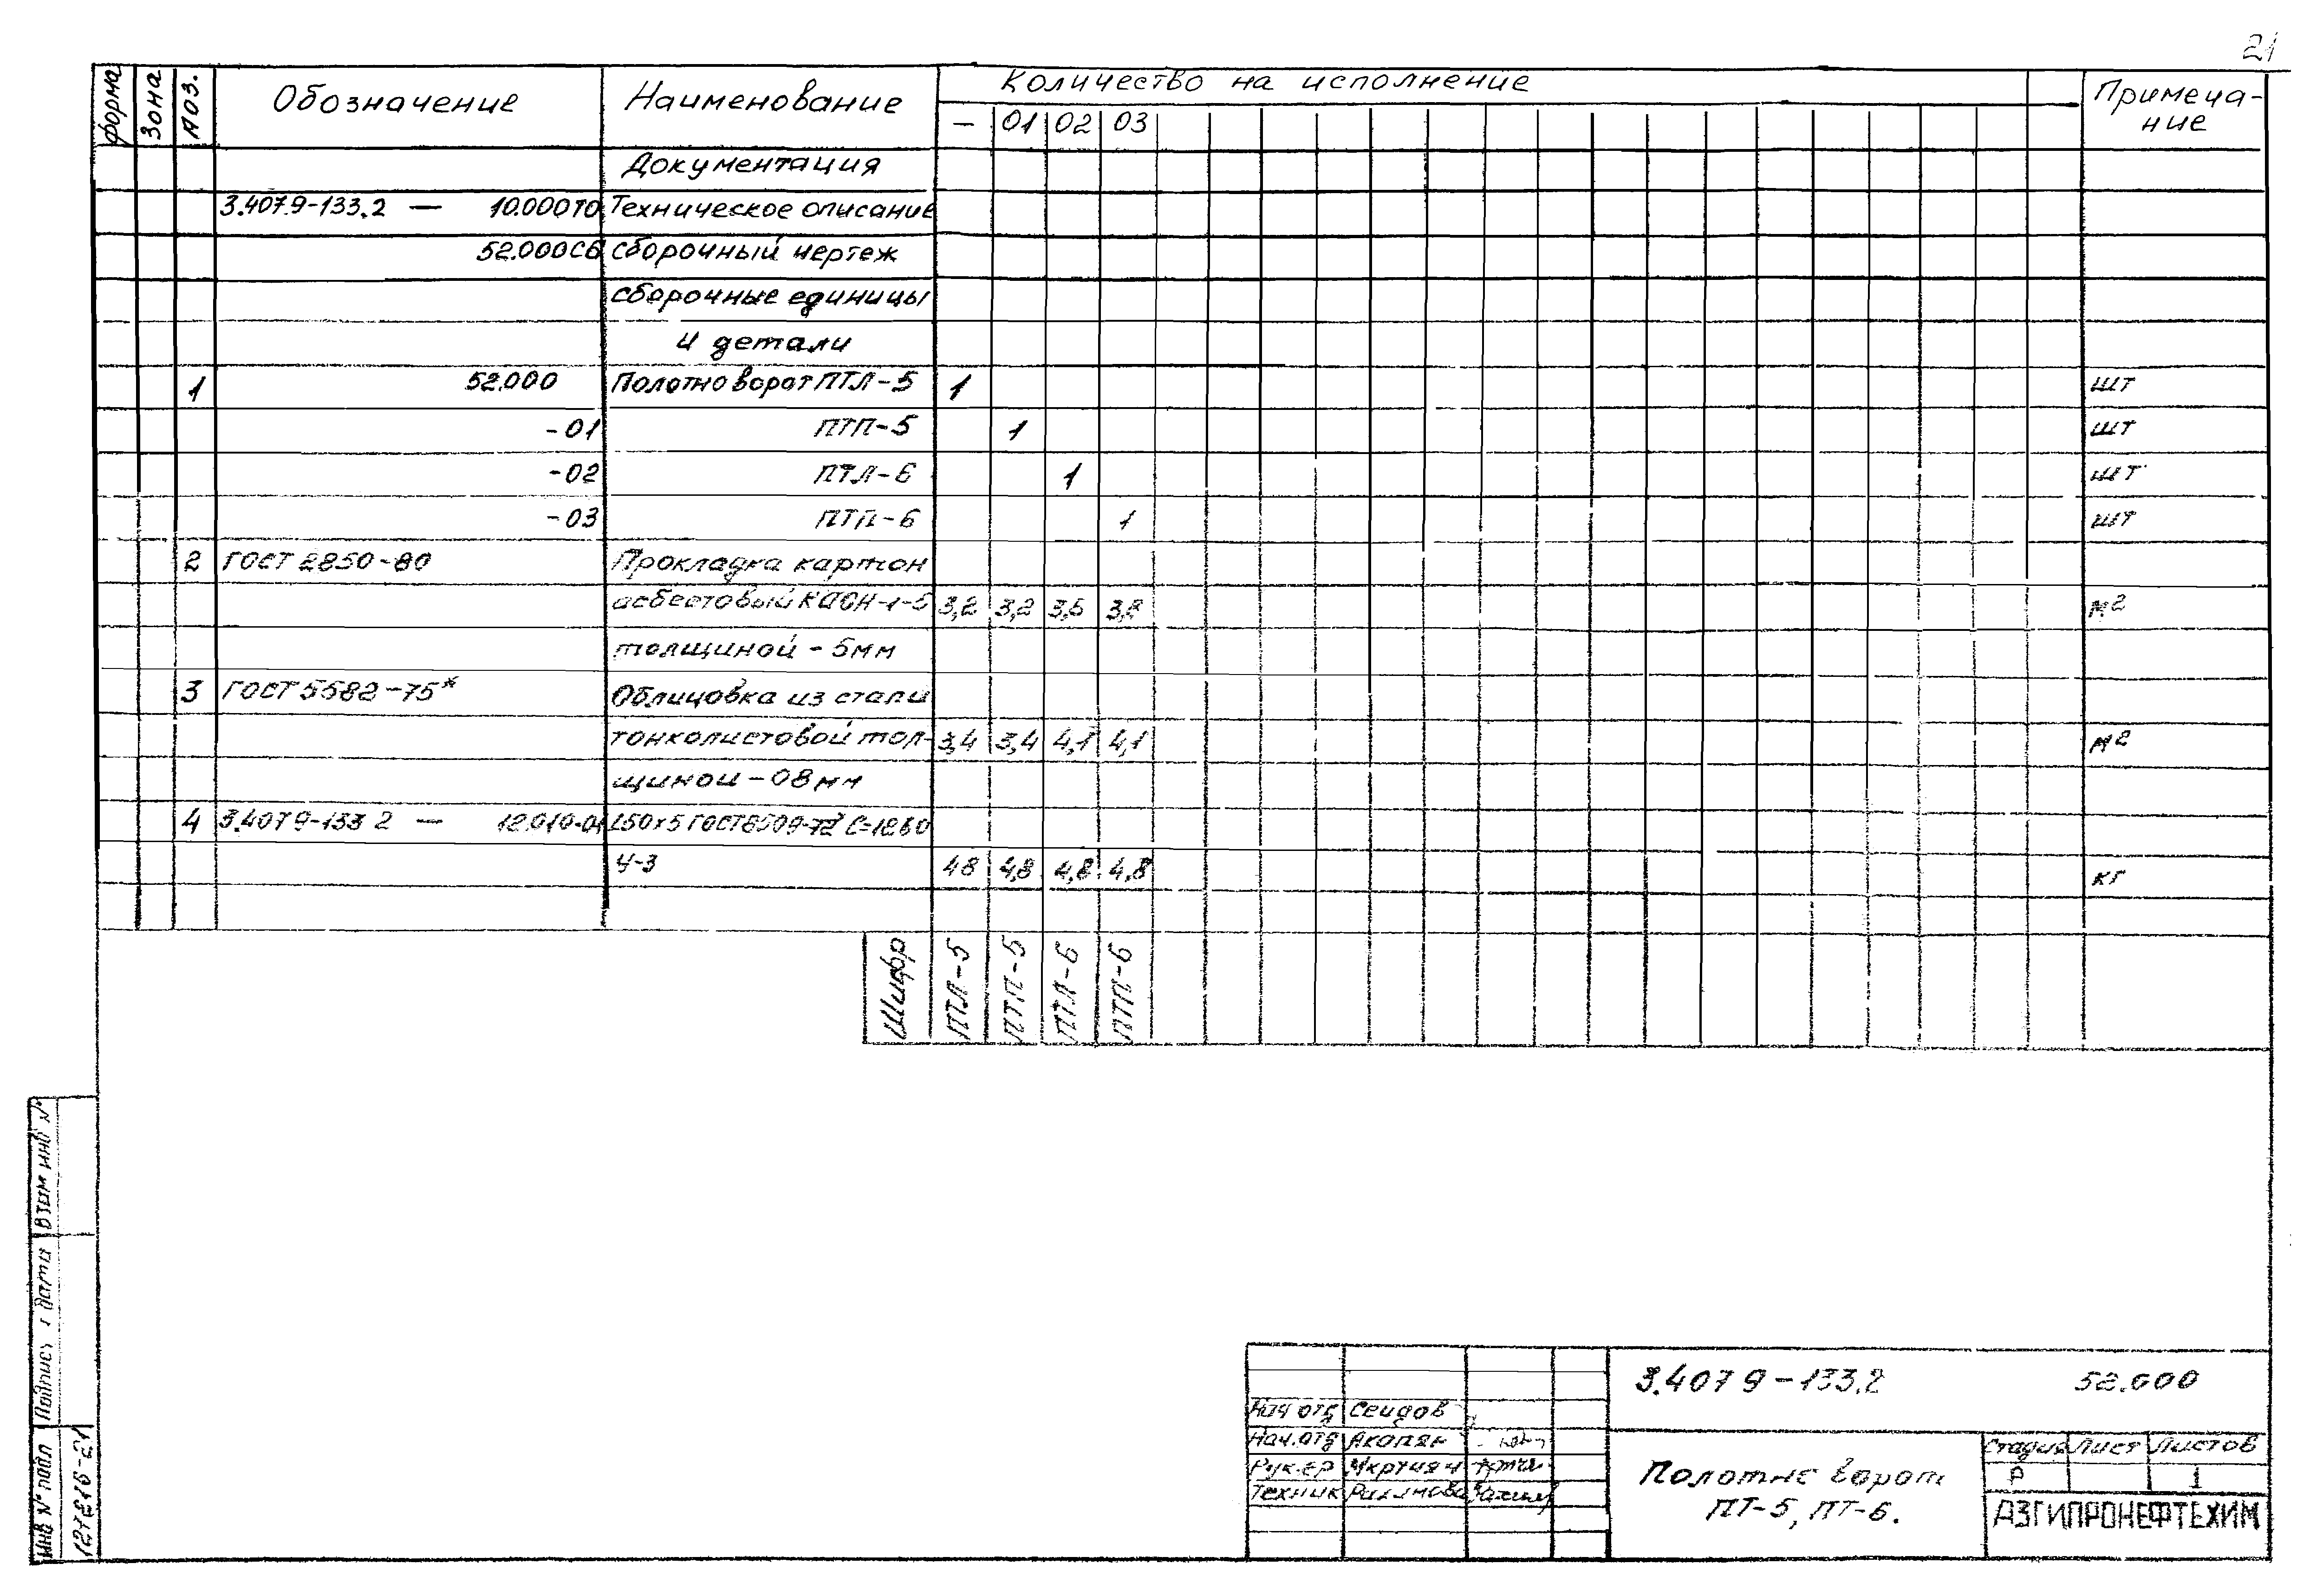 21
форма Зона поз. Обозначение Наименование Количество на исполнение Примеча-
ние
— 01 02 03
Документация
3.407.9-133.2 — 10.000ТО Техническое описание
52.000СБ сборочный чертеж
сборочные единицы
и детали
1 52.000 Полотно ворот ПТЛ-5 1 шт
-01 ПТП-5 1 шт
-02 ПТЛ-6 1 шт
-03 ПТП-6 1 шт
2 ГОСТ 2850-80 Прокладка картон
асбестовый КАОН-1-5 3,2 3,2 м2
толщиной - 5мм
3 ГОСТ 5582-75* Облицовка из стали
тонколистовой тол- 3,4 3,4 4,1 4,1 м2
щиной - 08мм
4 3.407 9-133 2 — 12.010-01 L50х5 ГОСТ8509-72 С=1260
Ч-3 48 4,8 4,8 4,8 кг
Шифр ПТЛ-5 ПТП-5 ПТЛ-6 ПТП-6
Взам инв №
Подпись и дата
Инв № подл
3.407 9-133.2 52.000
Нач отд Сеидов
Нач.отд Акопян
Рук.гр Мкртчян
Техник Рагимова
Полотно ворот
ПТ-5, ПТ-6.
Стадия Лист Листов
Р 1
АЗГИПРОНЕФТЕХИМ